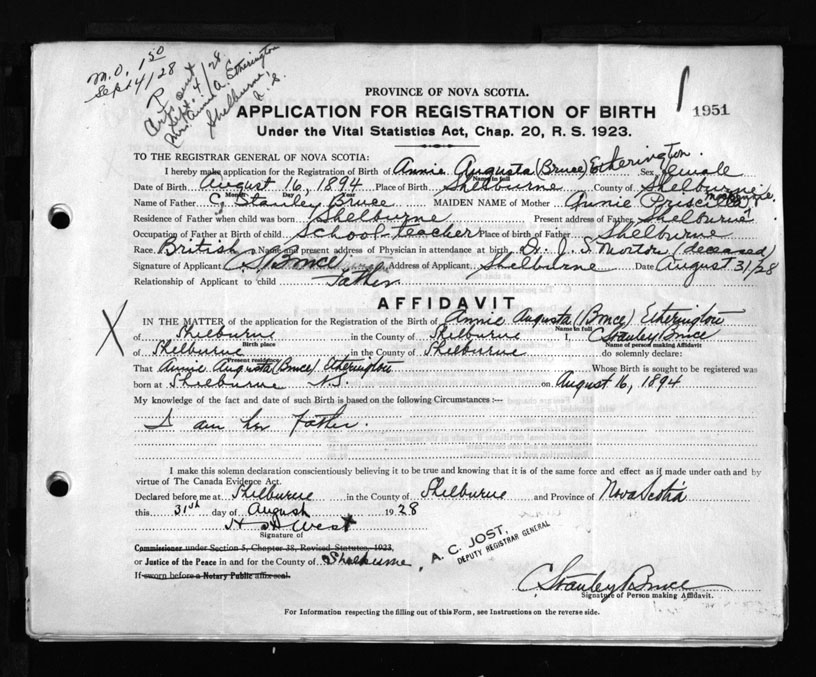 M.O. 1 50
Sept 4/28
Cert out
Sept. 4/28.
Annie A. Etherington
Shelburne
N.S.
PROVINCE OF NOVA SCOTIA.
APPLICATION FOR REGISTRATION OF BIRTH
1951
Under the Vital Statistics Act, Chap. 20, R. S. 1923.
TO THE REGISTRAR GENERAL OF NOVA SCOTIA:
I hereby make application for the Registration of Birth of Annie Augusta (Bruce) Etherington. Sex Female
Name in full
Date of Birth August 16, 1894 Place of Birth Shelburne County of Shelburne
Month Day Year
Name of Father C. Stanley Bruce MAIDEN NAME of Mother Annie Priscilla
Residence of Father when child was born Shelburne Present address of Father Shelburne
Occupation of Father at birth of Child School-teacher Place of birth of Father Shelburne
Race British Name and present address of Physician in attendance at birth Dr. J. S. Morton (deceased)
Signature of Applicant C S Bruce Address of Applicant Shelburne Date August 31/28
Relationship of Applicant to child Father
AFFIDAVIT
X
IN THE MATTER of the application for the Registration of the Birth of Annie Augusta (Bruce) Etherington
Name in full
of Shelburne in the County of Shelburne I, C Stanley Bruce
Birth place Name of person making Affidavit
of Shelburne in the County of Shelburne do solemnly declare:
Present residence
That Annie Augusta (Bruce) Etherington Whose Birth is sought to be registered was
born at Shelburne N.S. on August 16, 1894
My knowledge of the fact and date of such Birth is based on the following Circumstances :—
I am her Father.
I make this solemn declaration conscientiously believing it to be true and knowing that it is of the same force and effect as if made under oath and by
virtue of The Canada Evidence Act.
Declared before me at Shelburne in the County of Shelburne and Province of Nova Scotia
this 31st day of August 1928
H H West
Signature of
Commissioner under Section 5, Chapter 38, Revised Statutes, 1923,
or Justice of the Peace in and for the County of Shelburne,
If sworn before a Notary Public affix seal.
A. C. JOST,
DEPUTY REGISTRAR GENERAL
C. Stanley Bruce
Signature of Person making Affidavit.
For Information respecting the filling out of this Form, see Instructions on the reverse side.